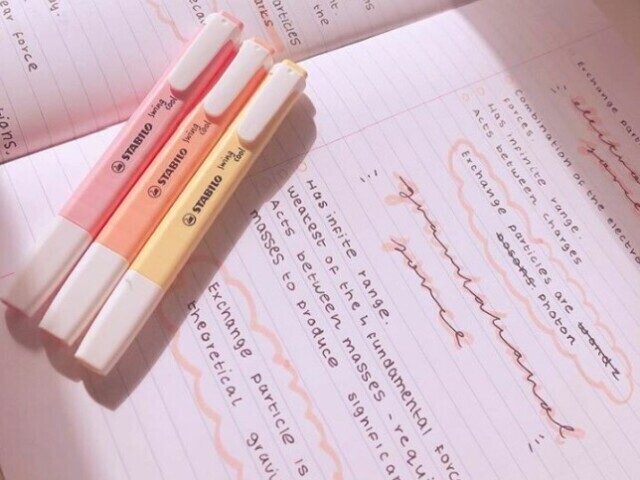 particles
the
force
STABILO swing cool
STABILO swing cool
STABILO swing cool
Exchange part
Combination of the electro
forces
Has infinite range.
Acts between charges
Exchange particles are
bosons photon
gravitational
force
Has infite range.
Weakest of the 4 fundamental forc
Acts between masses - requi
masses to produce significan
Exchange particle is
theoretical gravi